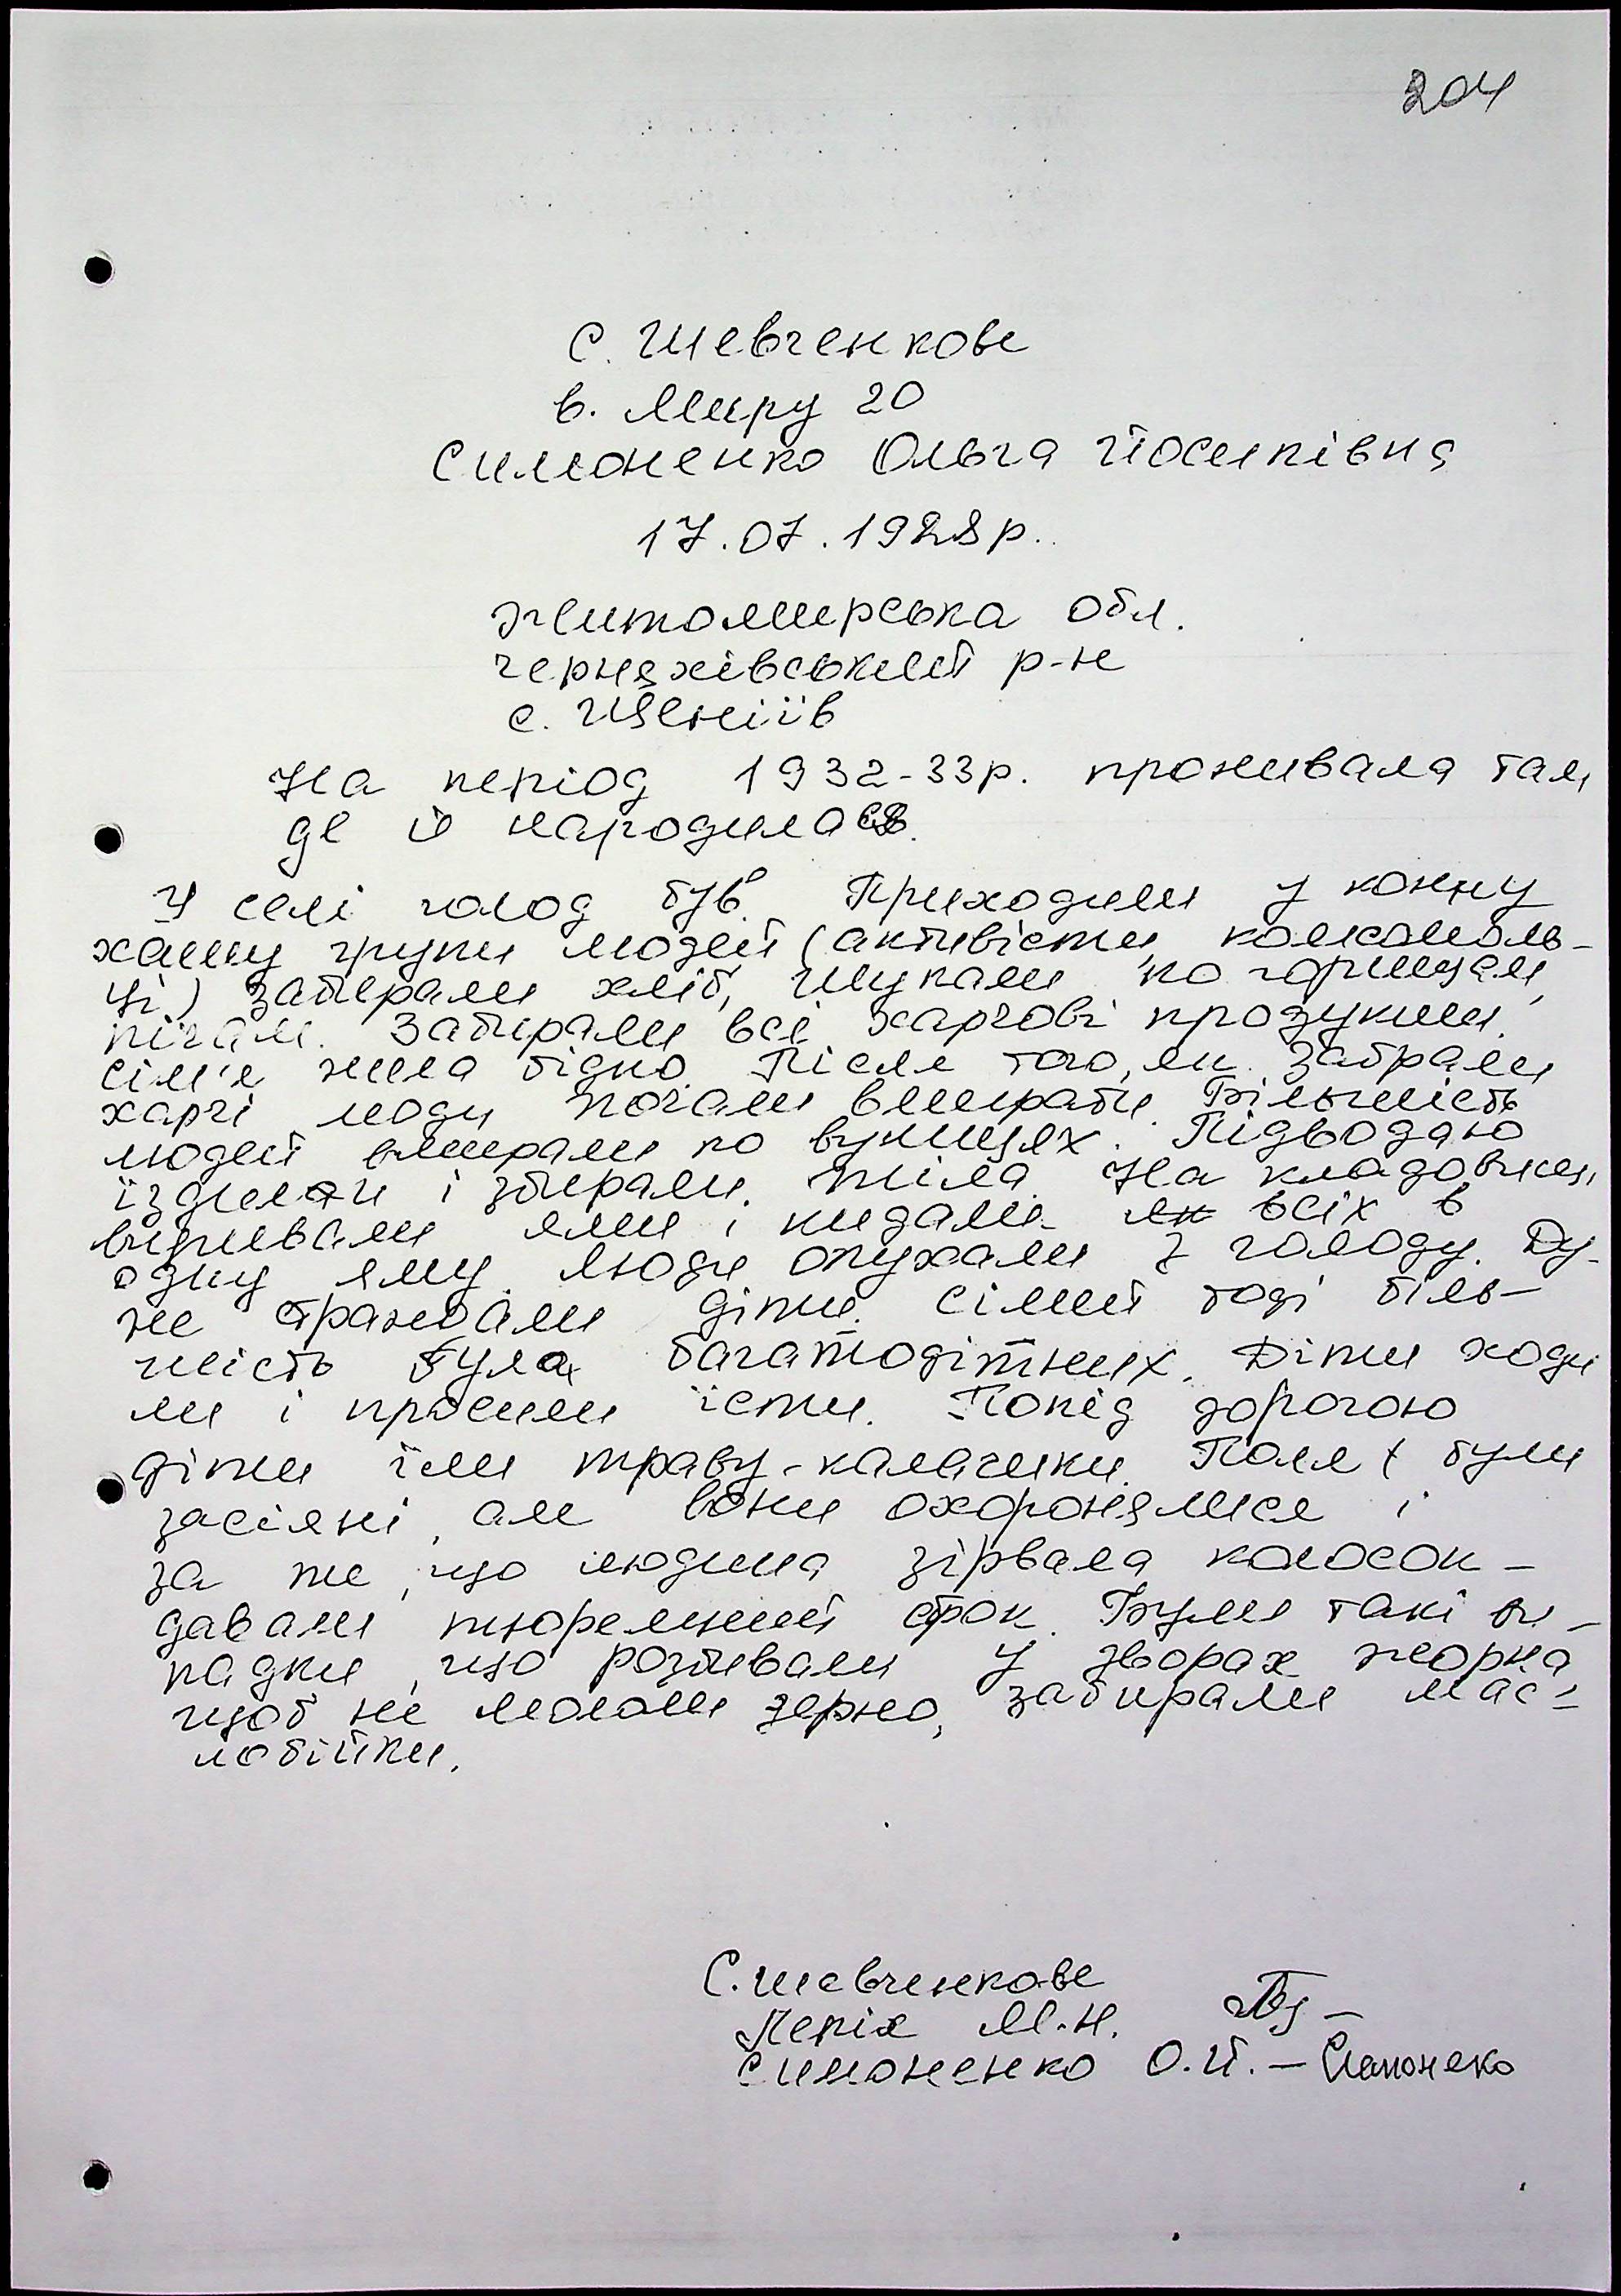 204
с. Шевченкове
в. Миру 20
Симоненко Ольга Йосипівна
17.07.1928р.
Житомирська обл.
Черняхівський р-н
с.
На період 1932-33р. проживала там
де й народилась.
У селі голод був. Приходили у кожну
хатину групи людей (активісти, комсомоль-
ці) забирали хліб, шукали по горищам,
пічам. Забирали всі харчові продукти.
Сім'я жила бідно. Після того, як забрали
харчі люди почали вмирати. Більшість
людей вмирали по вулицях. Підводою
їздили і збирали тіла. На кладовищі
виривали ями і кидали всіх в
одну яму. Люди опухали з голоду. Ду-
же страждали діти. Сімей тоді біль-
шість була багатодітних. Діти ходи
ли і просили їсти. Попід дорогою
діти їли траву-калачики. Поля були
засіяні, але вони охоронялися і
за те, що людина зірвала колосок -
давали тюремний строк. Були такі ви-
падки, що розбивали у дворах жорна
щоб не мололи зерно, забирали мас-
лобійки.
С. Шевченкове
Леріх М.Н.
Симоненко О.Й. - Симоненко